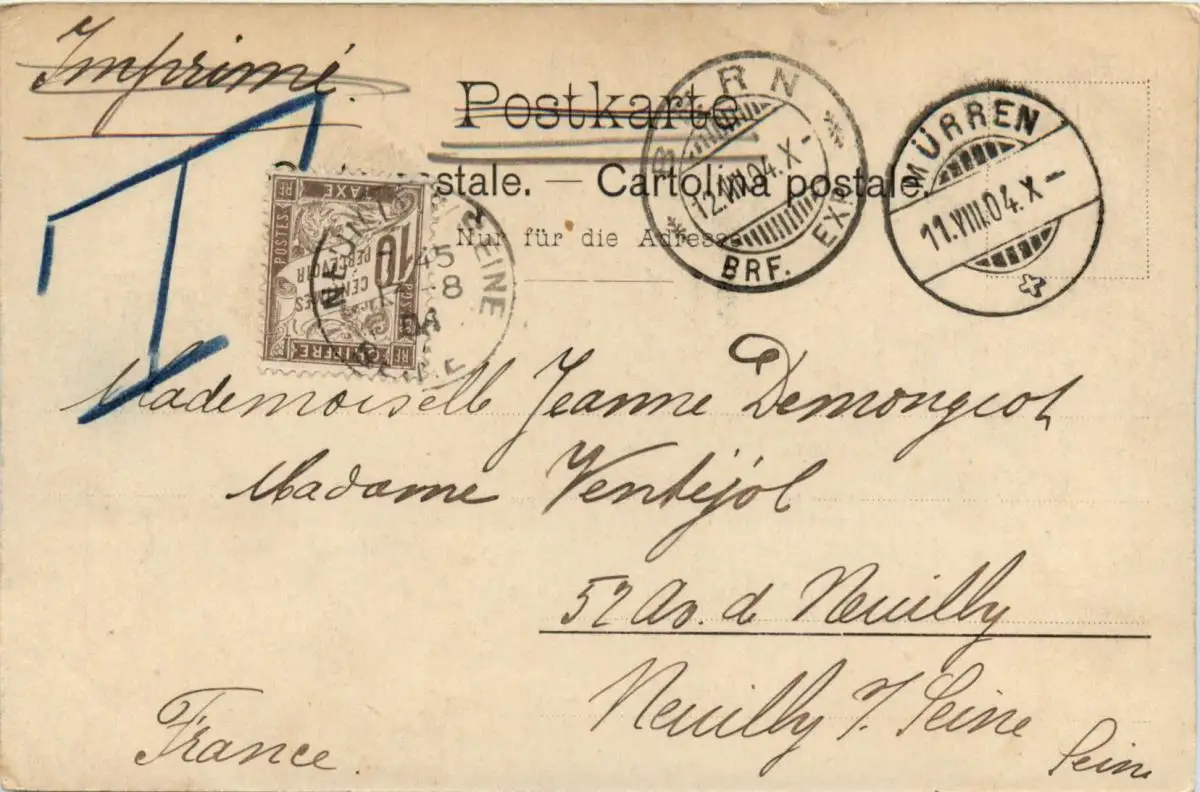 Imprimé.
Postkarte
stale. — Cartolina postale.
Nur für die Adresse
BERN
12.VIII.04.X-
BRF. EXP.
MÜRREN
11.VIII.04.X-
T
POSTES RF TAXE
10
CENTIMES
PERCEVOIR
CHIFFRE RF
NEUILLY SEINE
45
-8
04
SEINE
Mademoiselle Jeanne Demongeot
Madame Ventéjol
52 Av. de Neuilly
Neuilly s/ Seine
Seine
France.